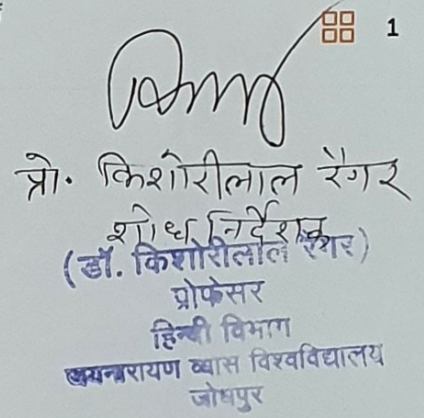 1
प्रो. किशोरीलाल रैगर
शोध निर्देशक
(डॉ. किशोरीलाल रैगर)
प्रोफेसर
हिन्दी विभाग
जयनारायण व्यास विश्वविद्यालय
जोधपुर